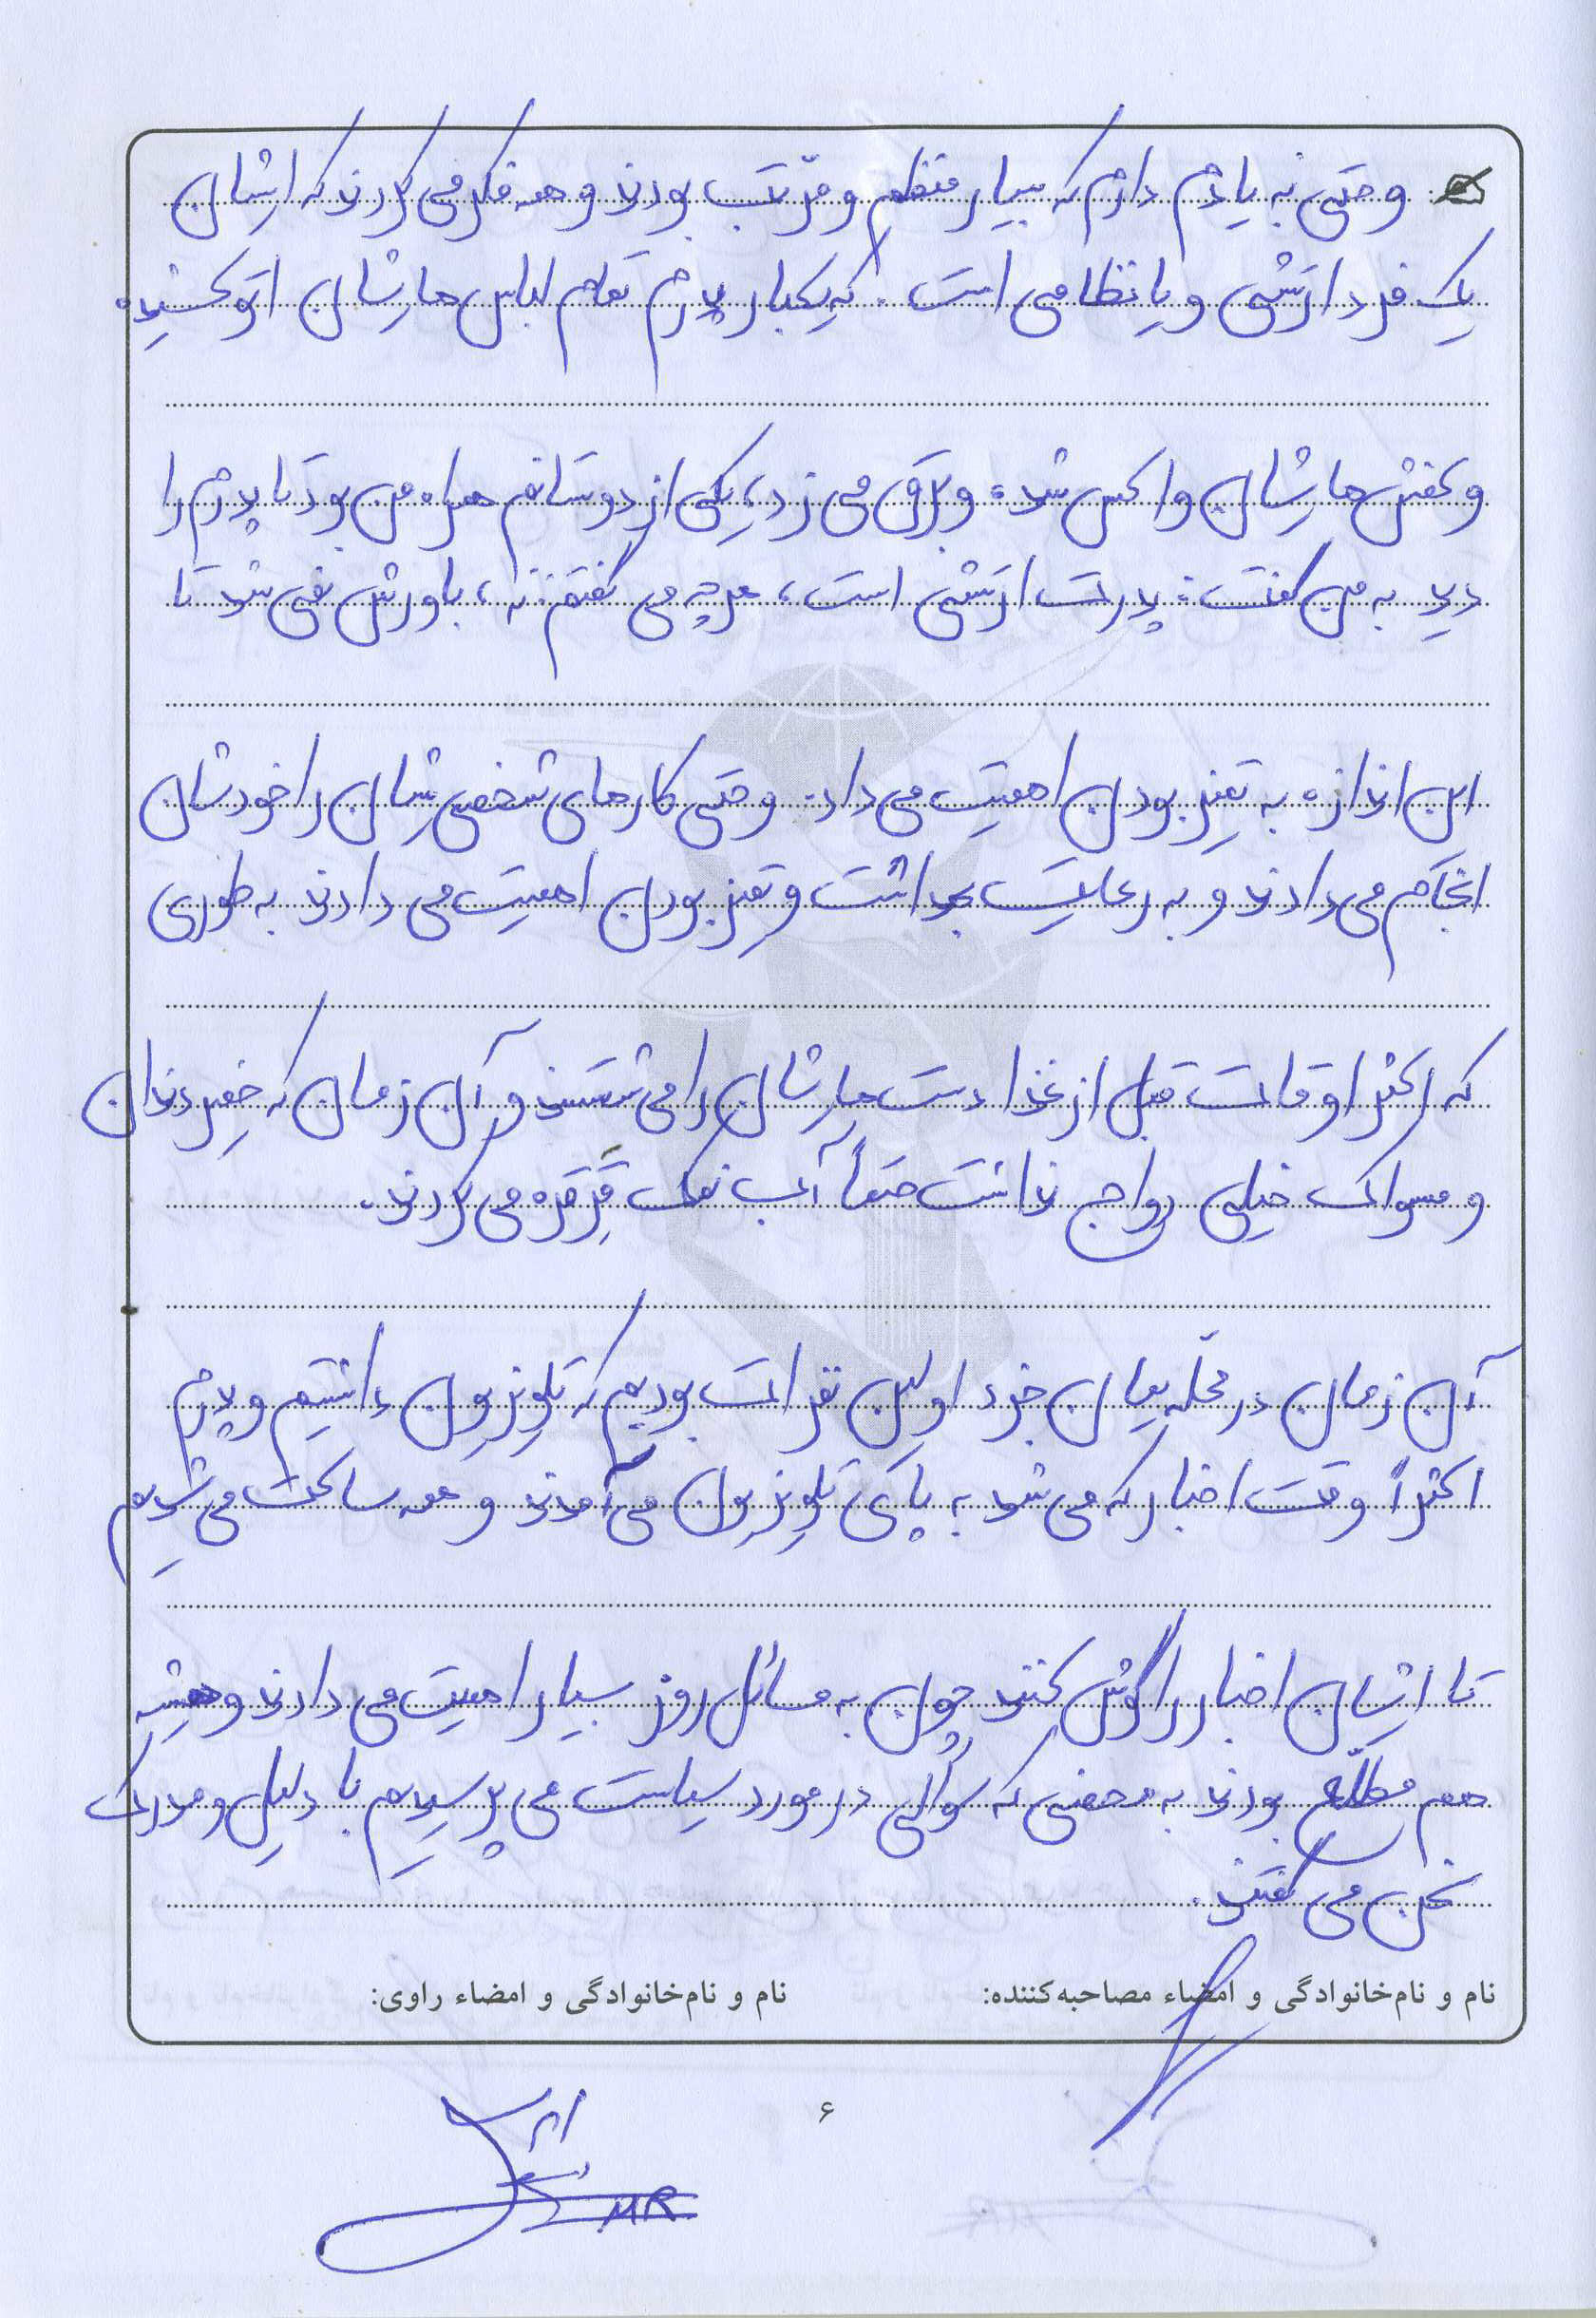 و حتی به یادم دارم که بسیار منظم و مرتّب بودند و همه فکر می کردند که ایشان
یک فرد ارتشی و یا نظامی است. که یکبار پدرم تمام لباس هایشان اتو کشیده
و کفش هایشان واکس شده و برق می زد، یکی از دوستانم همراه من بود تا پدرم را
دید به من گفت: پدرت ارتشی است، هرچه می گفتم: نه، باورش نمی شد تا
این اندازه به تمیز بودن اهمیت می داد. و حتی کارهای شخصی شان را خودشان
انجام می دادند و به رعایت بهداشت و تمیز بودن اهمیت می دادند به طوری
که اکثر اوقات قبل از غذا دست هایشان را می شستند و آن زمان که خمیردندان
و مسواک خیلی رواج نداشت حتماً آب نمک قِرقره می کردند.
آن زمان در محلّه یمان جزء اولین نفرات بودیم که تلویزیون داشتیم و پدرم
اکثراً وقت اخبار که می شد به پای تلویزیون می آمدند و همه ساکت می شدیم
تا ایشان اخبار را گوش کنند چون به مسائل روز بسیار اهمیت می دادند و همیشه
هم مطلّع بودند به محضی که سؤالی در مورد سیاست می پرسیدیم با دلیل و مدرک
سخن می گفتند.
نام و نام‌خانوادگی و امضاء مصاحبه‌کننده: نام و نام‌خانوادگی و امضاء راوی:
۶
MR